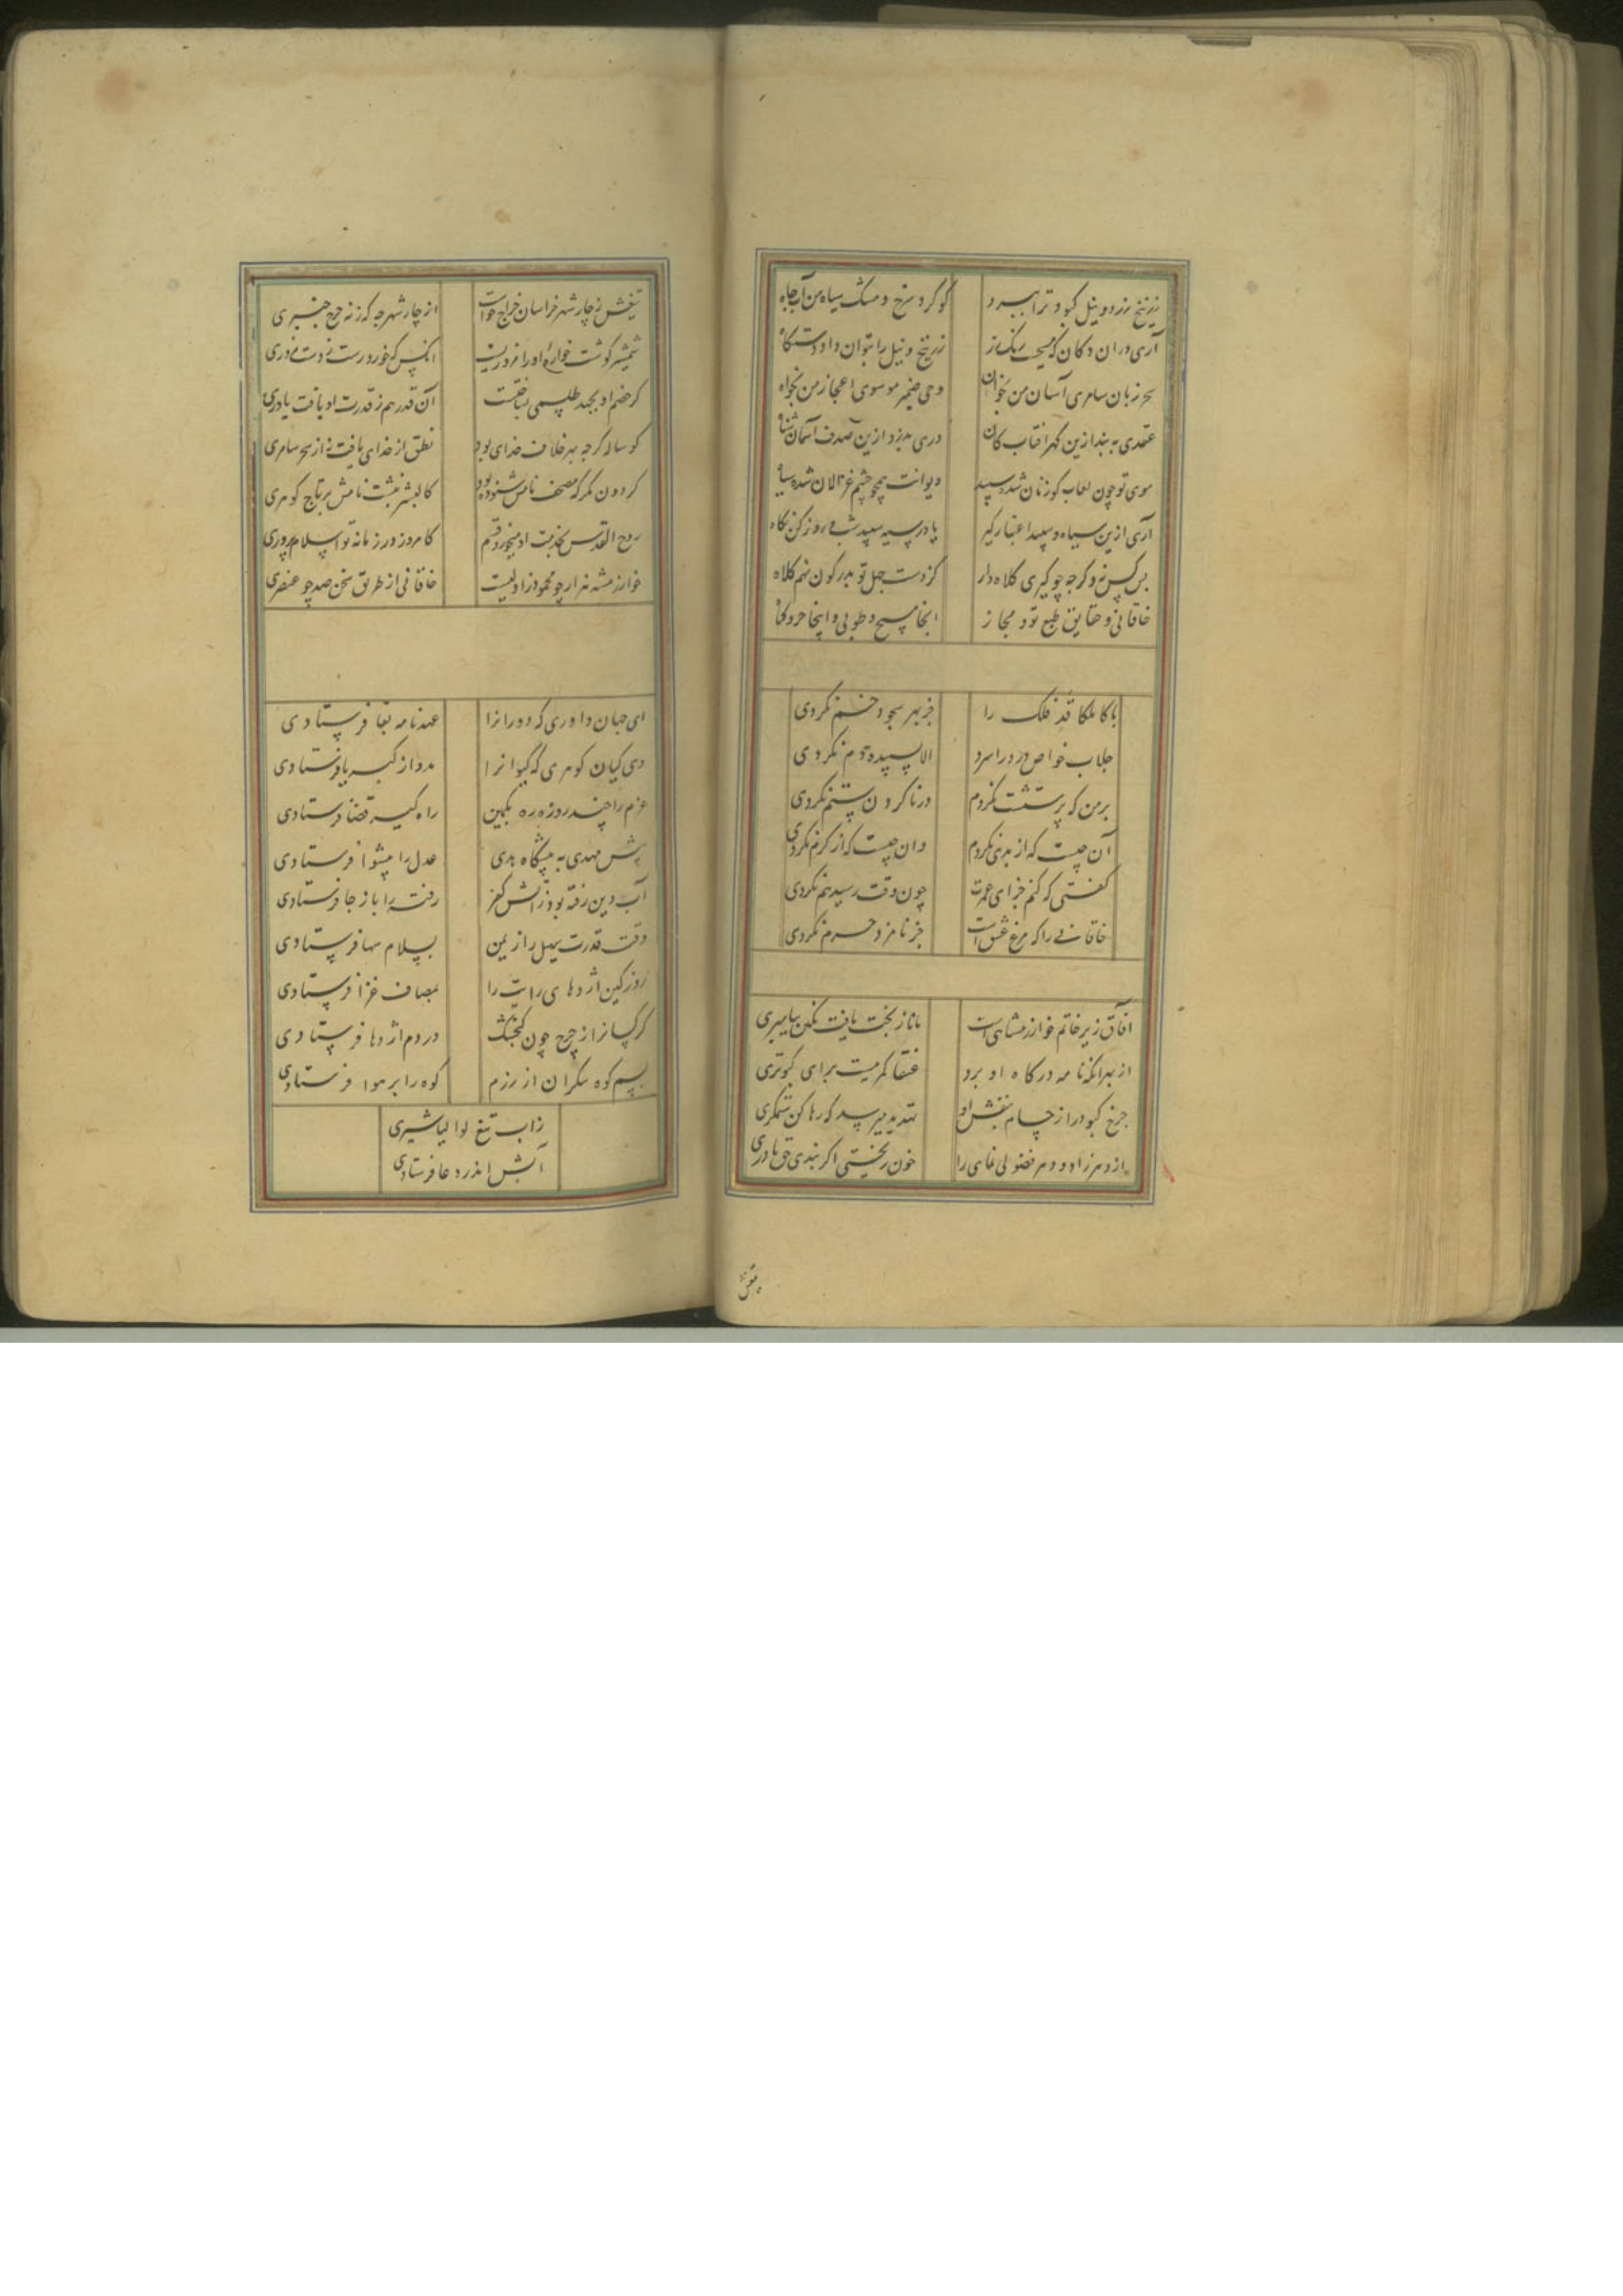 زرنیخ زرد و نیل کبود ترا ببرد
کوکرد سرخ و مشک سیاه من آب جاه
آری در ان دکان که مسیحست رنک‌رز
زرنیخ و نیل را نتوان داد دستکاه
سحر زبان سامری آسان من بخوان
وحی ضمیر موسوی اعجاز من بخواه
عقدی به بند ازین کهر افتاب کان
دری بدزد ازین صدف آسمان شناه
موی تو چون لعاب کوزنان شده سپید
دیوانت همچو چشم غزالان شده سیاه
آری ازین سیاه و سپید اعتبار کیر
یا در سیه سپید شب و روز کن نکاه
کلاه دار
کلاه
خاقانی و حقایق طبع تو و مجاز
انجا مسیح و طوبی و اینجا خر و کیاه
با کا ملکا قد فلک را
جز بهر سجود خم نکردی
جلاب خواص درد را سرد
الا سپیده دم نکردی
بر من که پرستشت نکردم
در ناکردن ستم نکردی
آن چیست که از بدی نکردم
وان چیست که از کرم نکردی
کفتی که کنم جزای عمرت
چون وقت رسید هم نکردی
خاقانی را که مرغ عشق است
جز نامزد حرم نکردی
افاق زیر خاتم خوارزمشاهی است
مانا ز بخت یافت نکین پیامبری
از بهر انکه نامه درکاه او برد
عنقا کمر ببست برای کبوتری
چرخ کبود را ز حسام بنفش او
تهدید میرسد که رها کن ستمکری
از دهر زاد و دهر فضولی نمای را
خون ریختی اکر نبدی حق مادری
تیغش
تیغش ز چار شهر خراسان خراج خواست
از چار شهر چه که ز نه چرخ چنبری
شمشیر کوشت خواره او را مزور یست
انکس که خورد رست ز دست مزوری
کر خصم او بجید طلسمی بساختست
آن قدر هم ز قدرت او یافت یاوری
کوساله کر چه بهر خلاف خدای بود
نطق از خدای یافت نه از سحر سامری
کردون مکر که مصحف نامش شنوده بود
کالبشر نبشت نامش بر تاج کوهری
روح القدس بخدمت او میخورد قسم
کامروز در زمانه تو اسلام پروری
خوارزمشه هزار چو محمود زاولیست
خاقانی از طریق سخن صد چو عنصری
ای جهان داوری که دورانرا
عهدنامه بقا فرستادی
وی کیان کوهری که کیوانرا
مدد از کبریا فرستادی
عزم را چند روزه ره بکمین
راه کیر قضا فرستادی
پیش مهدی به پیشکاه هدی
عدل را پیشوا فرستادی
آب دین رفته بود ز اتش کفر
رفته را باز جا فرستادی
وقت قدرت سهیل را ز یمن
بسلام سها فرستادی
روز کین اژدهای رایت را
بمصاف غزا فرستادی
کرکسانرا ز چرخ چون کنجشک
در دم اژدها فرستادی
بسم کوه پیکران از رزم
کوه را بر هوا فرستادی
زاب تیغ لوالباشیری
آتش اندر وغا فرستادی